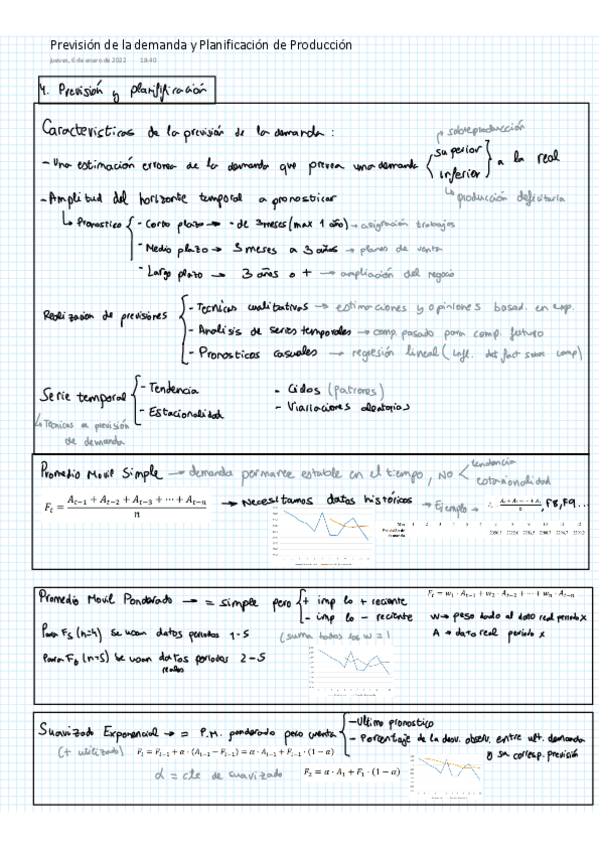 Previsión de la demanda y Planificación de Producción
jueves, 6 de enero de 2022 18:40
4. Previsión y planificación
Características de la previsión de la demanda:
- Una estimación erronea de la demanda que prevea una demanda { superior / inferior } a la real
sobreproducción
producción deficitaria
- Amplitud del horizonte temporal a pronosticar
Pronostico { - Corto plazo → - de 3 meses (max 1 año) → asignación trabajos
- Medio plazo → 3 meses a 3 años → planes de venta
- Largo plazo → 3 años o + → ampliación del negocio
Realización de previsiones { - Tecnicas cualitativas → estimaciones y opiniones basad. en exp.
- Analisis de series temporales → comp. pasado para comp. futuro
- Pronosticos casuales → regesión lineal (infl. del fact sobre comp)
Serie temporal { - Tendencia - Ciclos (patrones)
- Estacionalidad - Viarlaciones aleatorias
↳ Tecnicas de previsión
de demanda
Promedio Movil Simple → demanda permanece estable en el tiempo, NO < tendencia
estacionalidad
F_t = (A_{t-1} + A_{t-2} + A_{t-3} + ⋯ + A_{t-n}) / n → Necesitamos datos históricos → Ejemplo → , F8, F9...
Promedio Movil Ponderado → = simple pero { + imp lo + reciente
- imp lo - reciente
F_t = w_1 · A_{t-1} + w_2 · A_{t-2} + ⋯ + w_n · A_{t-n}
w → peso dado al dato real periodo x
A → dato real periodo x
Para F5 (n=4) se usan datos periodos 1-5 (suma todos los w = 1
Para F6 (n=5) se usan datos periodos 2-5
reales
Suavizado Exponencial → = P.M. ponderado pero cuenta { - Ultimo pronostico
- Porcentaje de la desv. observ. entre ult. demanda
y su corresp. previsión
(+ utilizado) F_t = F_{t-1} + α · (A_{t-1} − F_{t-1}) = α · A_{t-1} + F_{t-1} · (1 − α)
α = cte de suavizado F_2 = α · A_1 + F_1 · (1 − α)